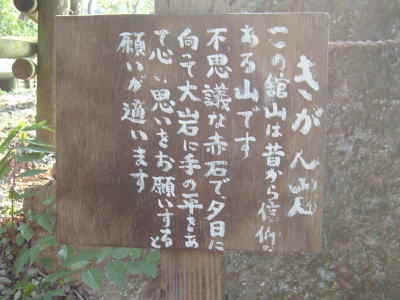 きがん山
この舘山は昔から信仰の
ある山です
不思議な赤石で夕日に
向って大岩に手の平をあ
て心に思いをお願いすると
願いが適います